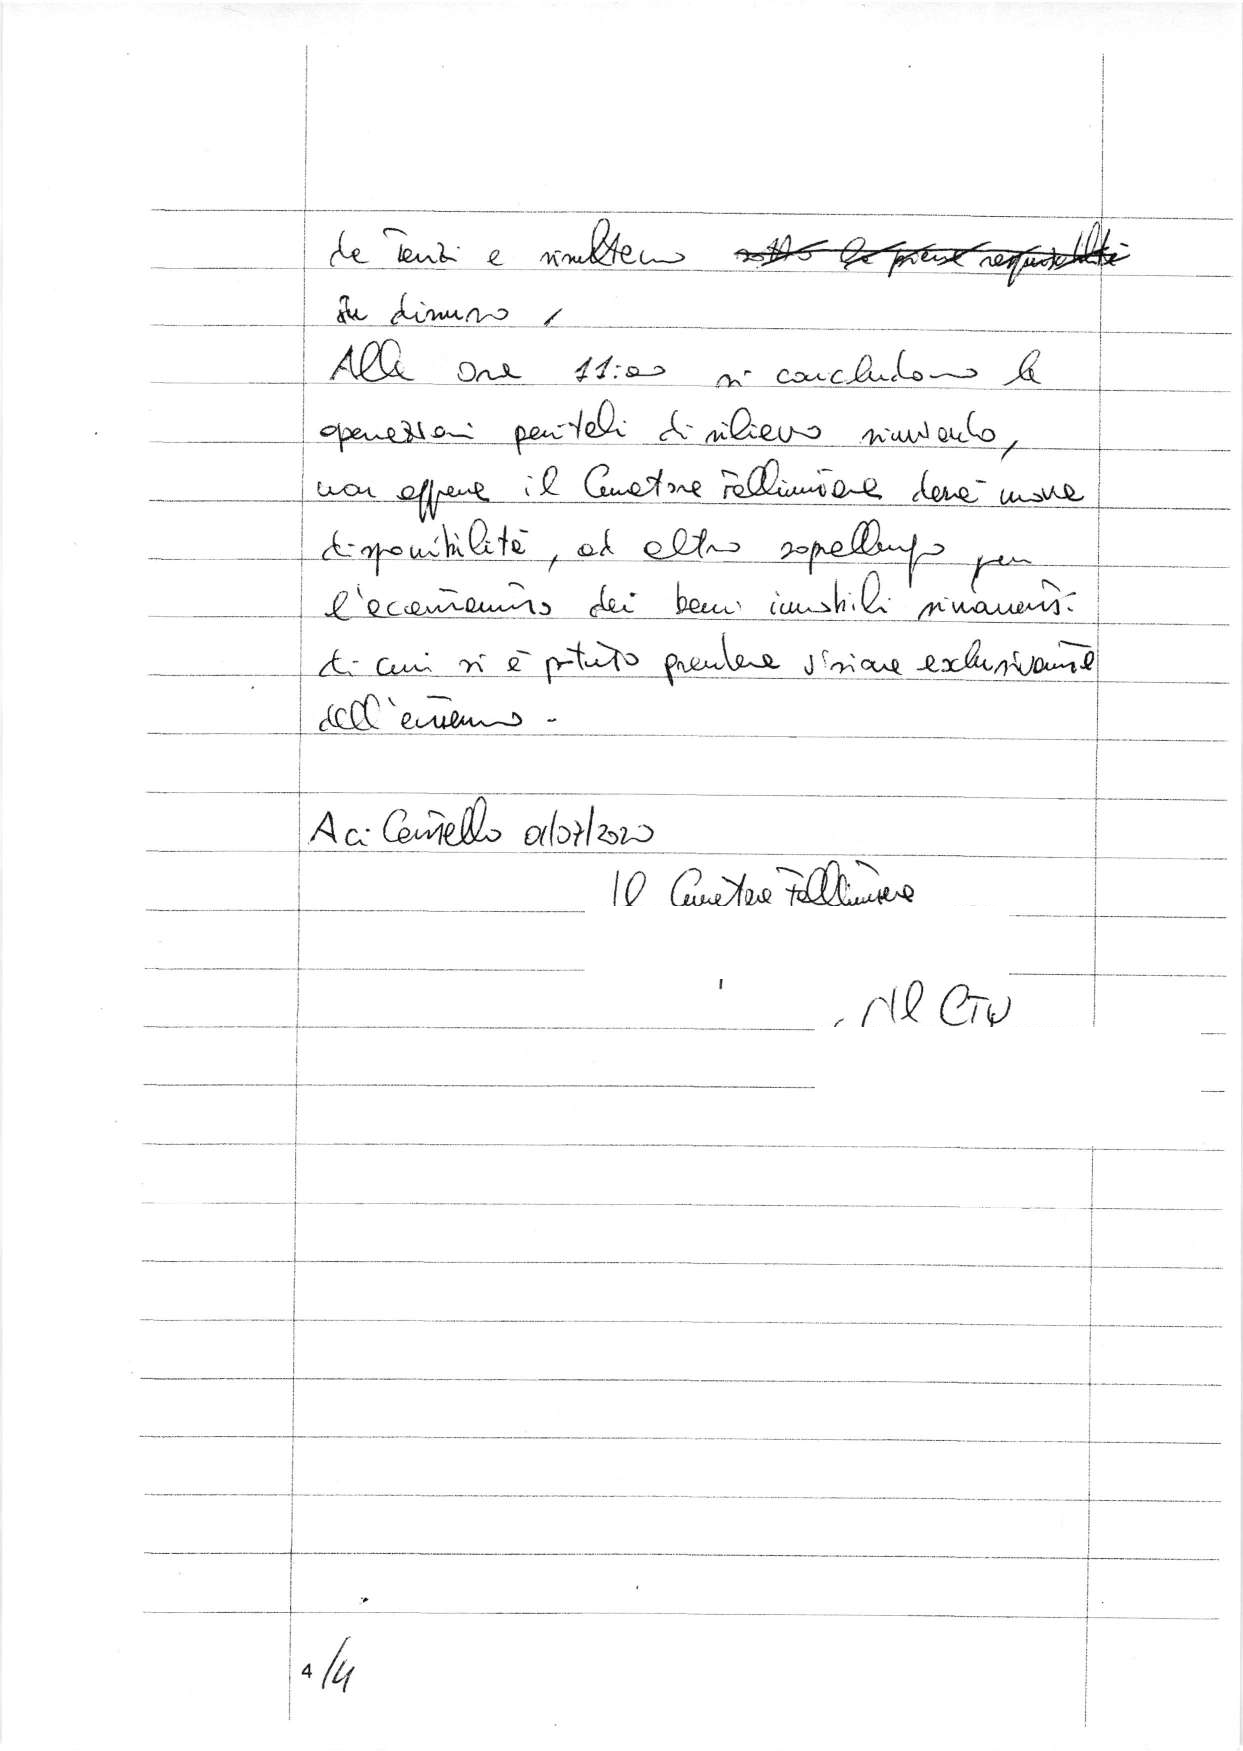 da terzi e risultano sotto la presa responsabilità
Alle ore 11:00 si concludono le
operazioni peritali di rilievo rinviando,
non appena il Curatore Fallimentare darà nuova
disponibilità, ad altro sopralluogo per
l'accertamento dei beni immobili rimanenti
di cui si è potuto prendere visione esclusivamente
dall'esterno -
Aci Castello 01/07/2020
Il Curatore Fallimentare
Il CTU
4/4